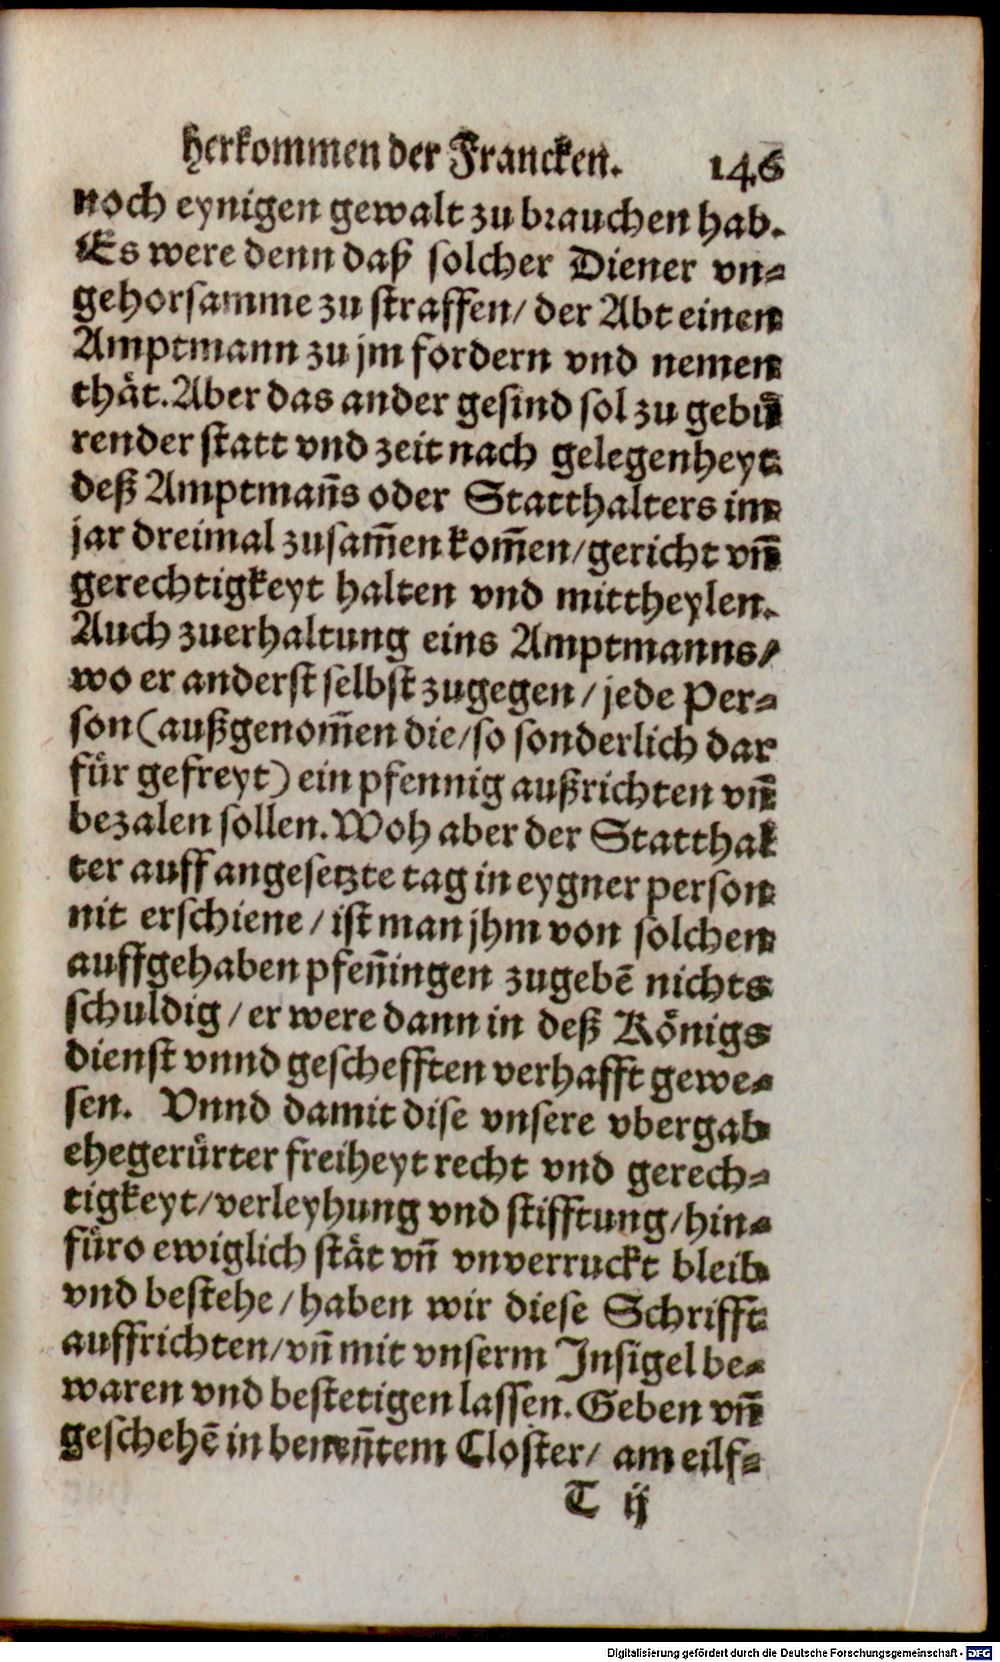 herkommen der Francken. 146
noch eynigen gewalt zu brauchen hab.
Es were denn daß solcher Diener vn⸗
gehorsamme zu straffen/ der Abt einen
Amptmann zu jm fordern vnd nemen
thåt. Aber das ander gesind sol zu gebü
render statt vnd zeit nach gelegenheyt
deß Amptmañs oder Statthalters im
jar dreimal zusam̃en kom̃en/ gericht vñ
gerechtigkeyt halten vnd mittheylen.
Auch zuerhaltung eins Amptmanns/
wo er anderst selbst zugegen / jede Per⸗
son (außgenom̃en die/ so sonderlich dar
für gefreyt) ein pfennig außrichten vñ
bezalen sollen. Woh aber der Statthal
ter auff angesetzte tag in eygner person
nit erschiene / ist man jhm von solchen
auffgehaben pfeñingen zugebẽ nichts
schuldig / er were dann in deß Königs
dienst vnnd geschefften verhafft gewe⸗
sen. Vnnd damit dise vnsere vbergab
ehegerürter freiheyt recht vnd gerech⸗
tigkeyt/ verleyhung vnd stifftung/ hin⸗
füro ewiglich ståt vñ vnverruckt bleib
vnd bestehe / haben wir diese Schrifft
auffrichten/ vñ mit vnserm Insigel be⸗
waren vnd bestetigen lassen. Geben vñ
geschehẽ in beneñtem Closter/ am eilf⸗
T ij
Digitalisierung gefördert durch die Deutsche Forschungsgemeinschaft - DFG